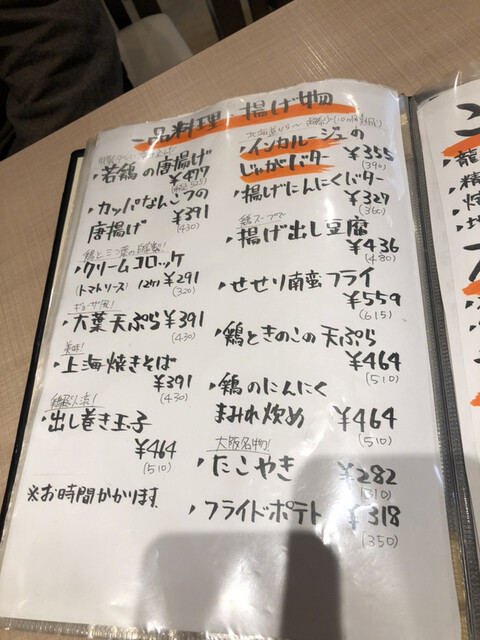 一品料理 揚げ物
・若鶏の唐揚げ
¥477
・カッパなんこつの
唐揚げ ¥391
(430)
・クリームコロッケ
(トマトソース) ¥291
(320)
ギョーザ風!
・大葉天ぷら ¥391
(430)
美味!
・上海焼きそば
¥391
(430)
・出し巻き玉子
¥464
(510)
※お時間かかります
・インカルージュの
じゃがバター ¥355
(390)
・揚げにんにくバター
¥327
(360)
鶏スープで
・揚げ出し豆腐
¥436
(480)
・せせり南蛮フライ
¥559
(615)
・鶏ときのこの天ぷら
¥464
(510)
・鶏のにんにく
まみれ炒め ¥464
(510)
大阪名物!
・たこやき ¥282
(310)
・フライドポテト ¥318
(350)